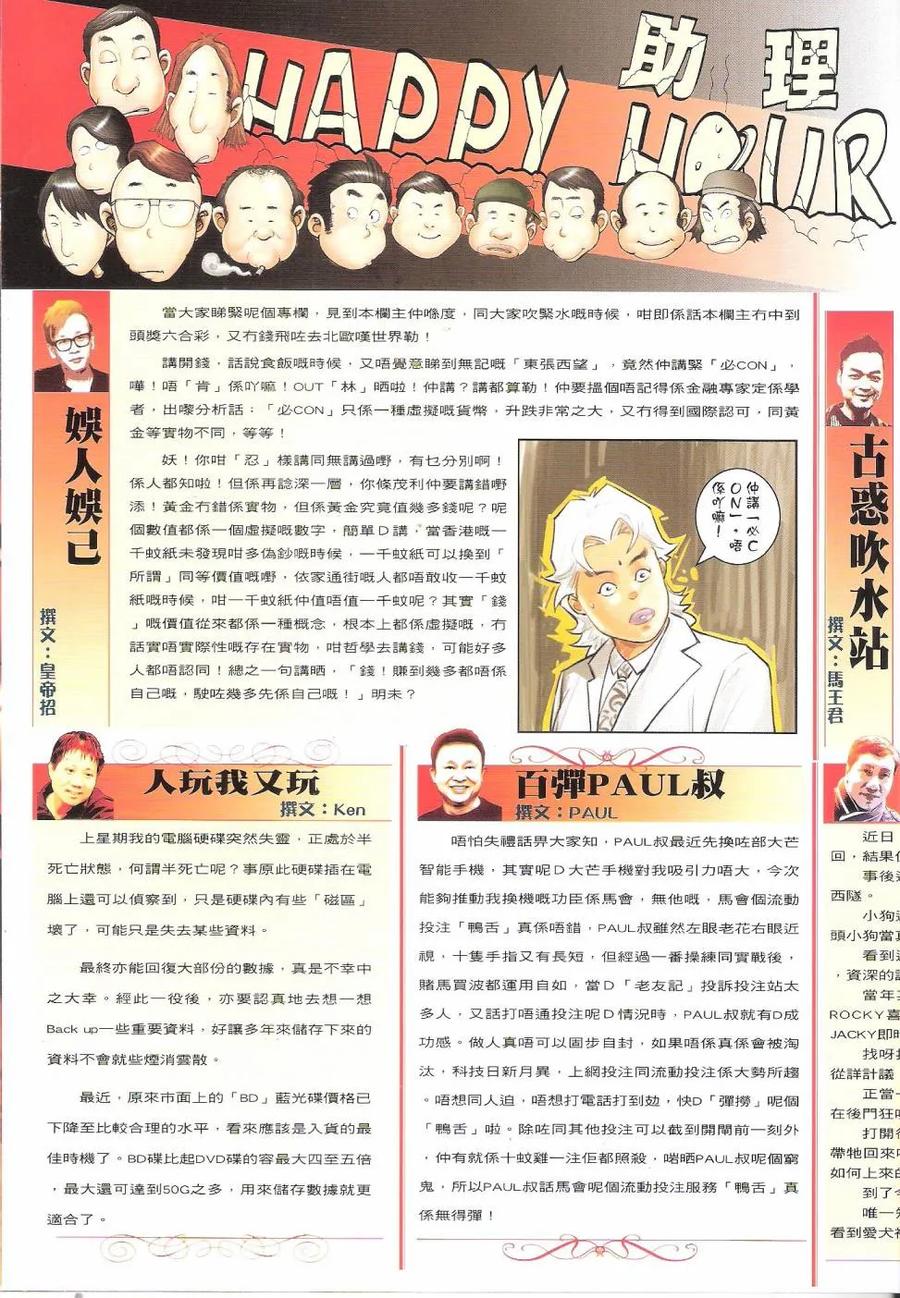 助理
HAPPY HOUR
娛人娛己
撰文：皇帝招
當大家睇緊呢個專欄，見到本欄主仲喺度，同大家吹緊水嘅時候，咁即係話本欄主冇中到
頭獎六合彩，又冇錢飛咗去北歐嘆世界勒！
講開錢，話說食飯嘅時候，又唔覺意睇到無記嘅「東張西望」，竟然仲講緊「必CON」，
嘩！唔「肯」係吖嘛！OUT「林」晒啦！仲講？講都算勒！仲要搵個唔記得係金融專家定係學
者，出嚟分析話：「必CON」只係一種虛擬嘅貨幣，升跌非常之大，又冇得到國際認可，同黃
金等實物不同，等等！
妖！你咁「忍」樣講同無講過嘢，有乜分別啊！
係人都知啦！但係再諗深一層，你條茂利仲要講錯嘢
添！黃金冇錯係實物，但係黃金究竟值幾多錢呢？呢
個數值都係一個虛擬嘅數字，簡單D講，當香港嘅一
千蚊紙未發現咁多偽鈔嘅時候，一千蚊紙可以換到「
所謂」同等價值嘅嘢，依家通街嘅人都唔敢收一千蚊
紙嘅時候，咁一千蚊紙仲值唔值一千蚊呢？其實「錢
」嘅價值從來都係一種概念，根本上都係虛擬嘅，冇
話實唔實際性嘅存在實物，咁哲學去講錢，可能好多
人都唔認同！總之一句講晒，「錢！賺到幾多都唔係
自己嘅，駛咗幾多先係自己嘅！」明未？
仲講「必C
ON」。唔
係吖嘛！
古惑吹水站
撰文：馬王君
人玩我又玩
撰文：Ken
上星期我的電腦硬碟突然失靈，正處於半
死亡狀態，何謂半死亡呢？事原此硬碟插在電
腦上還可以偵察到，只是硬碟內有些「磁區」
壞了，可能只是失去某些資料。
最終亦能回復大部份的數據，真是不幸中
之大幸。經此一役後，亦要認真地去想一想
Back up一些重要資料，好讓多年來儲存下來的
資料不會就些煙消雲散。
最近，原來市面上的「BD」藍光碟價格已
下降至比較合理的水平，看來應該是入貨的最
佳時機了。BD碟比起DVD碟的容最大四至五倍
，最大還可達到50G之多，用來儲存數據就更
適合了。
百彈PAUL叔
撰文：PAUL
唔怕失禮話畀大家知，PAUL叔最近先換咗部大芒
智能手機，其實呢D大芒手機對我吸引力唔大，今次
能夠推動我換機嘅功臣係馬會，無他嘅，馬會個流動
投注「鴨舌」真係唔錯，PAUL叔雖然左眼老花右眼近
視，十隻手指又有長短，但經過一番操練同實戰後，
賭馬買波都運用自如，當D「老友記」投訴投注站太
多人，又話打唔通投注呢D情況時，PAUL叔就有D成
功感。做人真唔可以固步自封，如果唔係真係會被淘
汰，科技日新月異，上網投注同流動投注係大勢所趨
。唔想同人迫，唔想打電話打到攰，快D「彈撈」呢個
「鴨舌」啦。除咗同其他投注可以截到開閘前一刻外
，仲有就係十蚊雞一注佢都照殺，啱晒PAUL叔呢個窮
鬼，所以PAUL叔話馬會呢個流動投注服務「鴨舌」真
係無得彈！
近日
回，結果
事後
西隧。
小狗
頭小狗當真
看到
，資深的
當年
ROCKY喜
JACKY即時
找呀
從詳計議
正當一
在後門狂
打開
帶牠回來
如何上來的
到了
唯一
看到愛犬